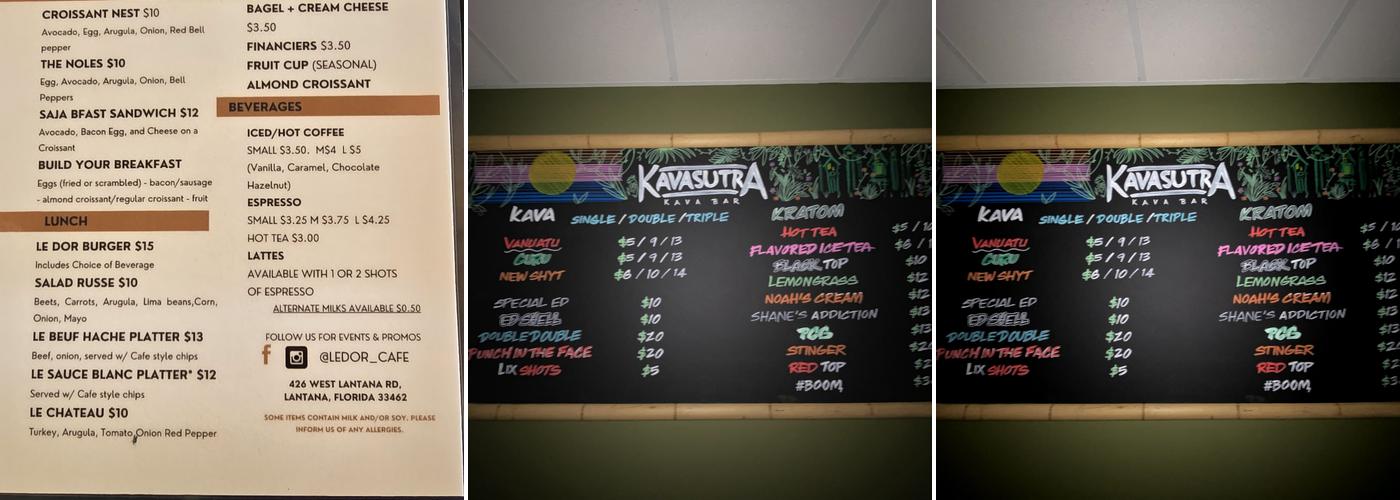 CROISSANT NEST $10
Avocado, Egg, Arugula, Onion, Red Bell
pepper
THE NOLES $10
Egg, Avocado, Arugula, Onion, Bell
Peppers
SAJA BFAST SANDWICH $12
Avocado, Bacon Egg, and Cheese on a
Croissant
BUILD YOUR BREAKFAST
Eggs (fried or scrambled) - bacon/sausage
- almond croissant/regular croissant - fruit
LUNCH
LE DOR BURGER $15
Includes Choice of Beverage
SALAD RUSSE $10
Beets, Carrots, Arugula, Lima beans,Corn,
Onion, Mayo
LE BEUF HACHE PLATTER $13
Beef, onion, served w/ Cafe style chips
LE SAUCE BLANC PLATTER* $12
Served w/ Cafe style chips
LE CHATEAU $10
Turkey, Arugula, Tomato, Onion Red Pepper
BAGEL + CREAM CHEESE
$3.50
FINANCIERS $3.50
FRUIT CUP (SEASONAL)
ALMOND CROISSANT
BEVERAGES
ICED/HOT COFFEE
SMALL $3.50. M$4 L $5
(Vanilla, Caramel, Chocolate
Hazelnut)
ESPRESSO
SMALL $3.25 M $3.75 L $4.25
HOT TEA $3.00
LATTES
AVAILABLE WITH 1 OR 2 SHOTS
OF ESPRESSO
ALTERNATE MILKS AVAILABLE $0.50
FOLLOW US FOR EVENTS & PROMOS
f @LEDOR_CAFE
426 WEST LANTANA RD,
LANTANA, FLORIDA 33462
SOME ITEMS CONTAIN MILK AND/OR SOY. PLEASE
INFORM US OF ANY ALLERGIES.
KAVASUTRA
KAVA BAR
KAVA SINGLE / DOUBLE / TRIPLE
VANUATU $5 / 9 / 13
GURU $5 / 9 / 13
NEW SHYT $6 / 10 / 14
SPECIAL ED $10
ED SHELL $10
DOUBLE DOUBLE $20
PUNCH IN THE FACE $20
LIX SHOTS $5
KRATOM
HOT TEA $5 / 10
FLAVORED ICE TEA $6 /
BLACK TOP $10
LEMONGRASS $12
NOAH'S CREAM $12
SHANE'S ADDICTION $13
TCG
STINGER
RED TOP
#BOOM
KAVASUTRA
KAVA BAR
KAVA SINGLE / DOUBLE / TRIPLE
VANUATU $5 / 9 / 13
GURU $5 / 9 / 13
NEW SHYT $6 / 10 / 14
SPECIAL ED $10
ED SHELL $10
DOUBLE DOUBLE $20
PUNCH IN THE FACE $20
LIX SHOTS $5
KRATOM
HOT TEA $5 / 10
FLAVORED ICE TEA $6 /
BLACK TOP $10
LEMONGRASS $12
NOAH'S CREAM $12
SHANE'S ADDICTION $13
TCG
STINGER
RED TOP
#BOOM